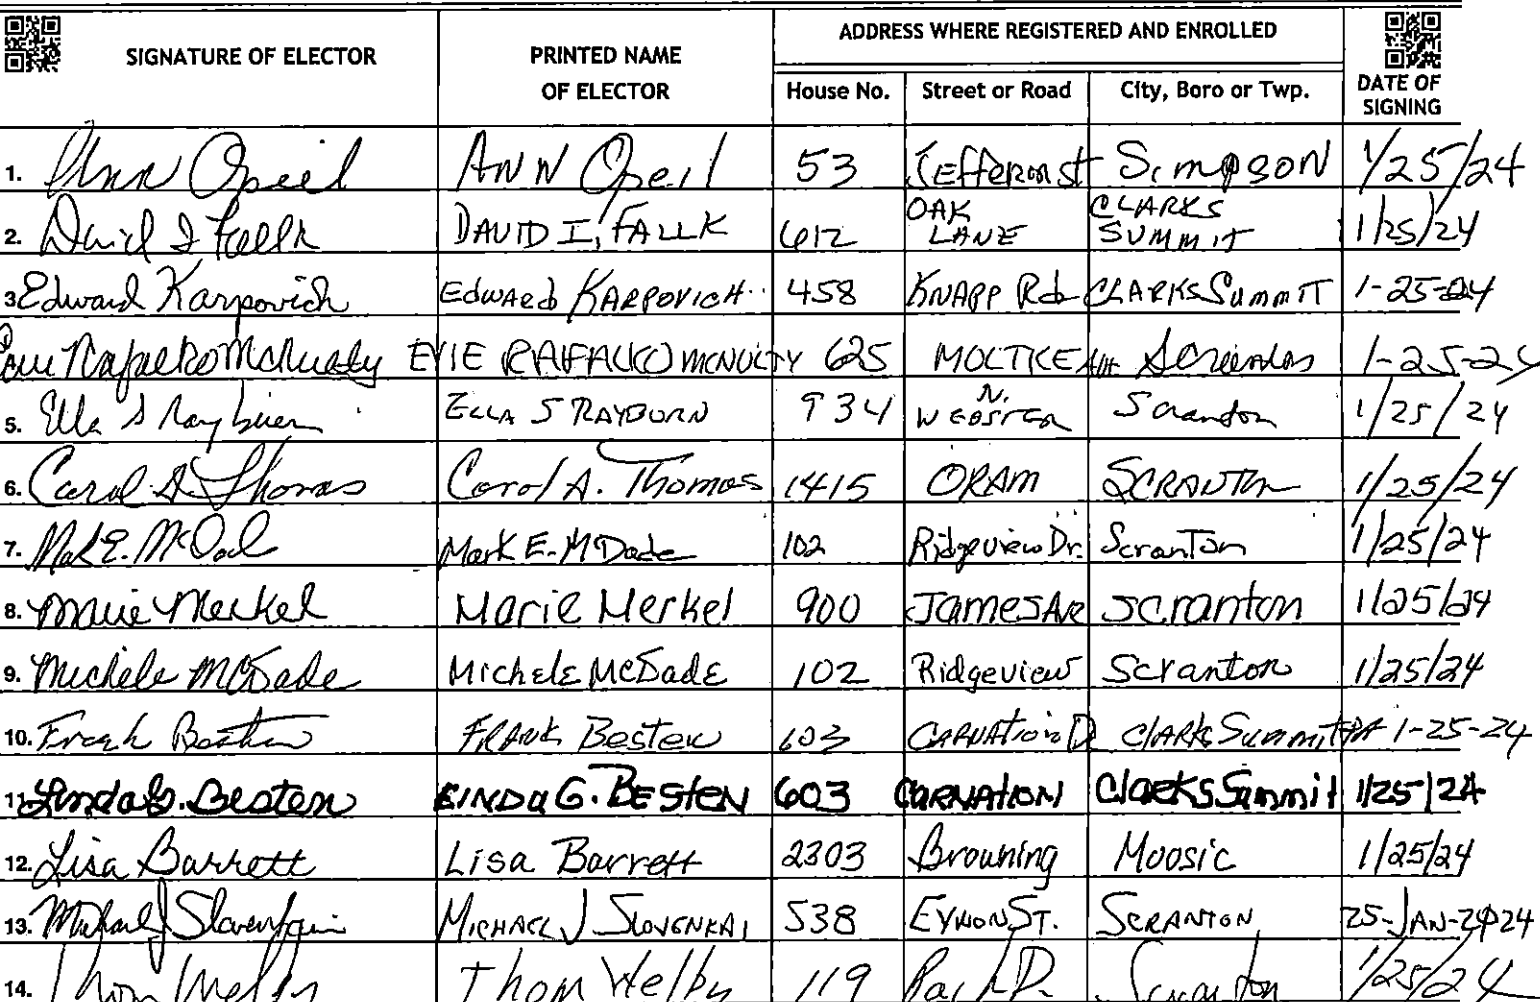 ADDRESS WHERE REGISTERED AND ENROLLED
SIGNATURE OF ELECTOR PRINTED NAME OF ELECTOR House No. Street or Road City, Boro or Twp. DATE OF SIGNING
1. Ann Opeil ANN Opeil 53 Jefferson st Simpson 1/25/24
2. David I Fallk DAVID I. FALLK 612 OAK LANE CLARKS SUMMIT 1/25/24
3 Edward Karpovich Edward KARPOVICH 458 KNAPP Rd CLARKS SummIT 1-25-24
Evie Rafalko McNulty EVIE RAFALKO MCNULTY 625 MOLTKE Ave Scranton 1-25-24
5. Ella S Rayburn ELLA S RAYBURN 934 N. WEBSTER Scranton 1/25/24
6. Carol A. Thomas Carol A. Thomas 1415 ORAM SCRANTON 1/25/24
7. Mark E. McDade Mark E. McDade 102 Ridgeview Dr. Scranton 1/25/24
8. Marie Merkel Marie Merkel 900 James Ave scranton 1/25/24
9. Michele McDade Michele McDade 102 Ridgeview Scranton 1/25/24
10. Frank Besten FRANK Besten 603 CARNATION D CLARKS Summit PA 1-25-24
11 Linda G. Besten LINDA G. BESTEN 603 CARNATION Clarks Summit 1/25/24
12. Lisa Barrett Lisa Barrett 2303 Browning Moosic 1/25/24
13. Michael J Slovenkai MICHAEL J SLOVENKAI 538 EYNON ST. SCRANTON 25-JAN-2024
14. Thom Welby Thom Welby 119 Scranton 1/25/24